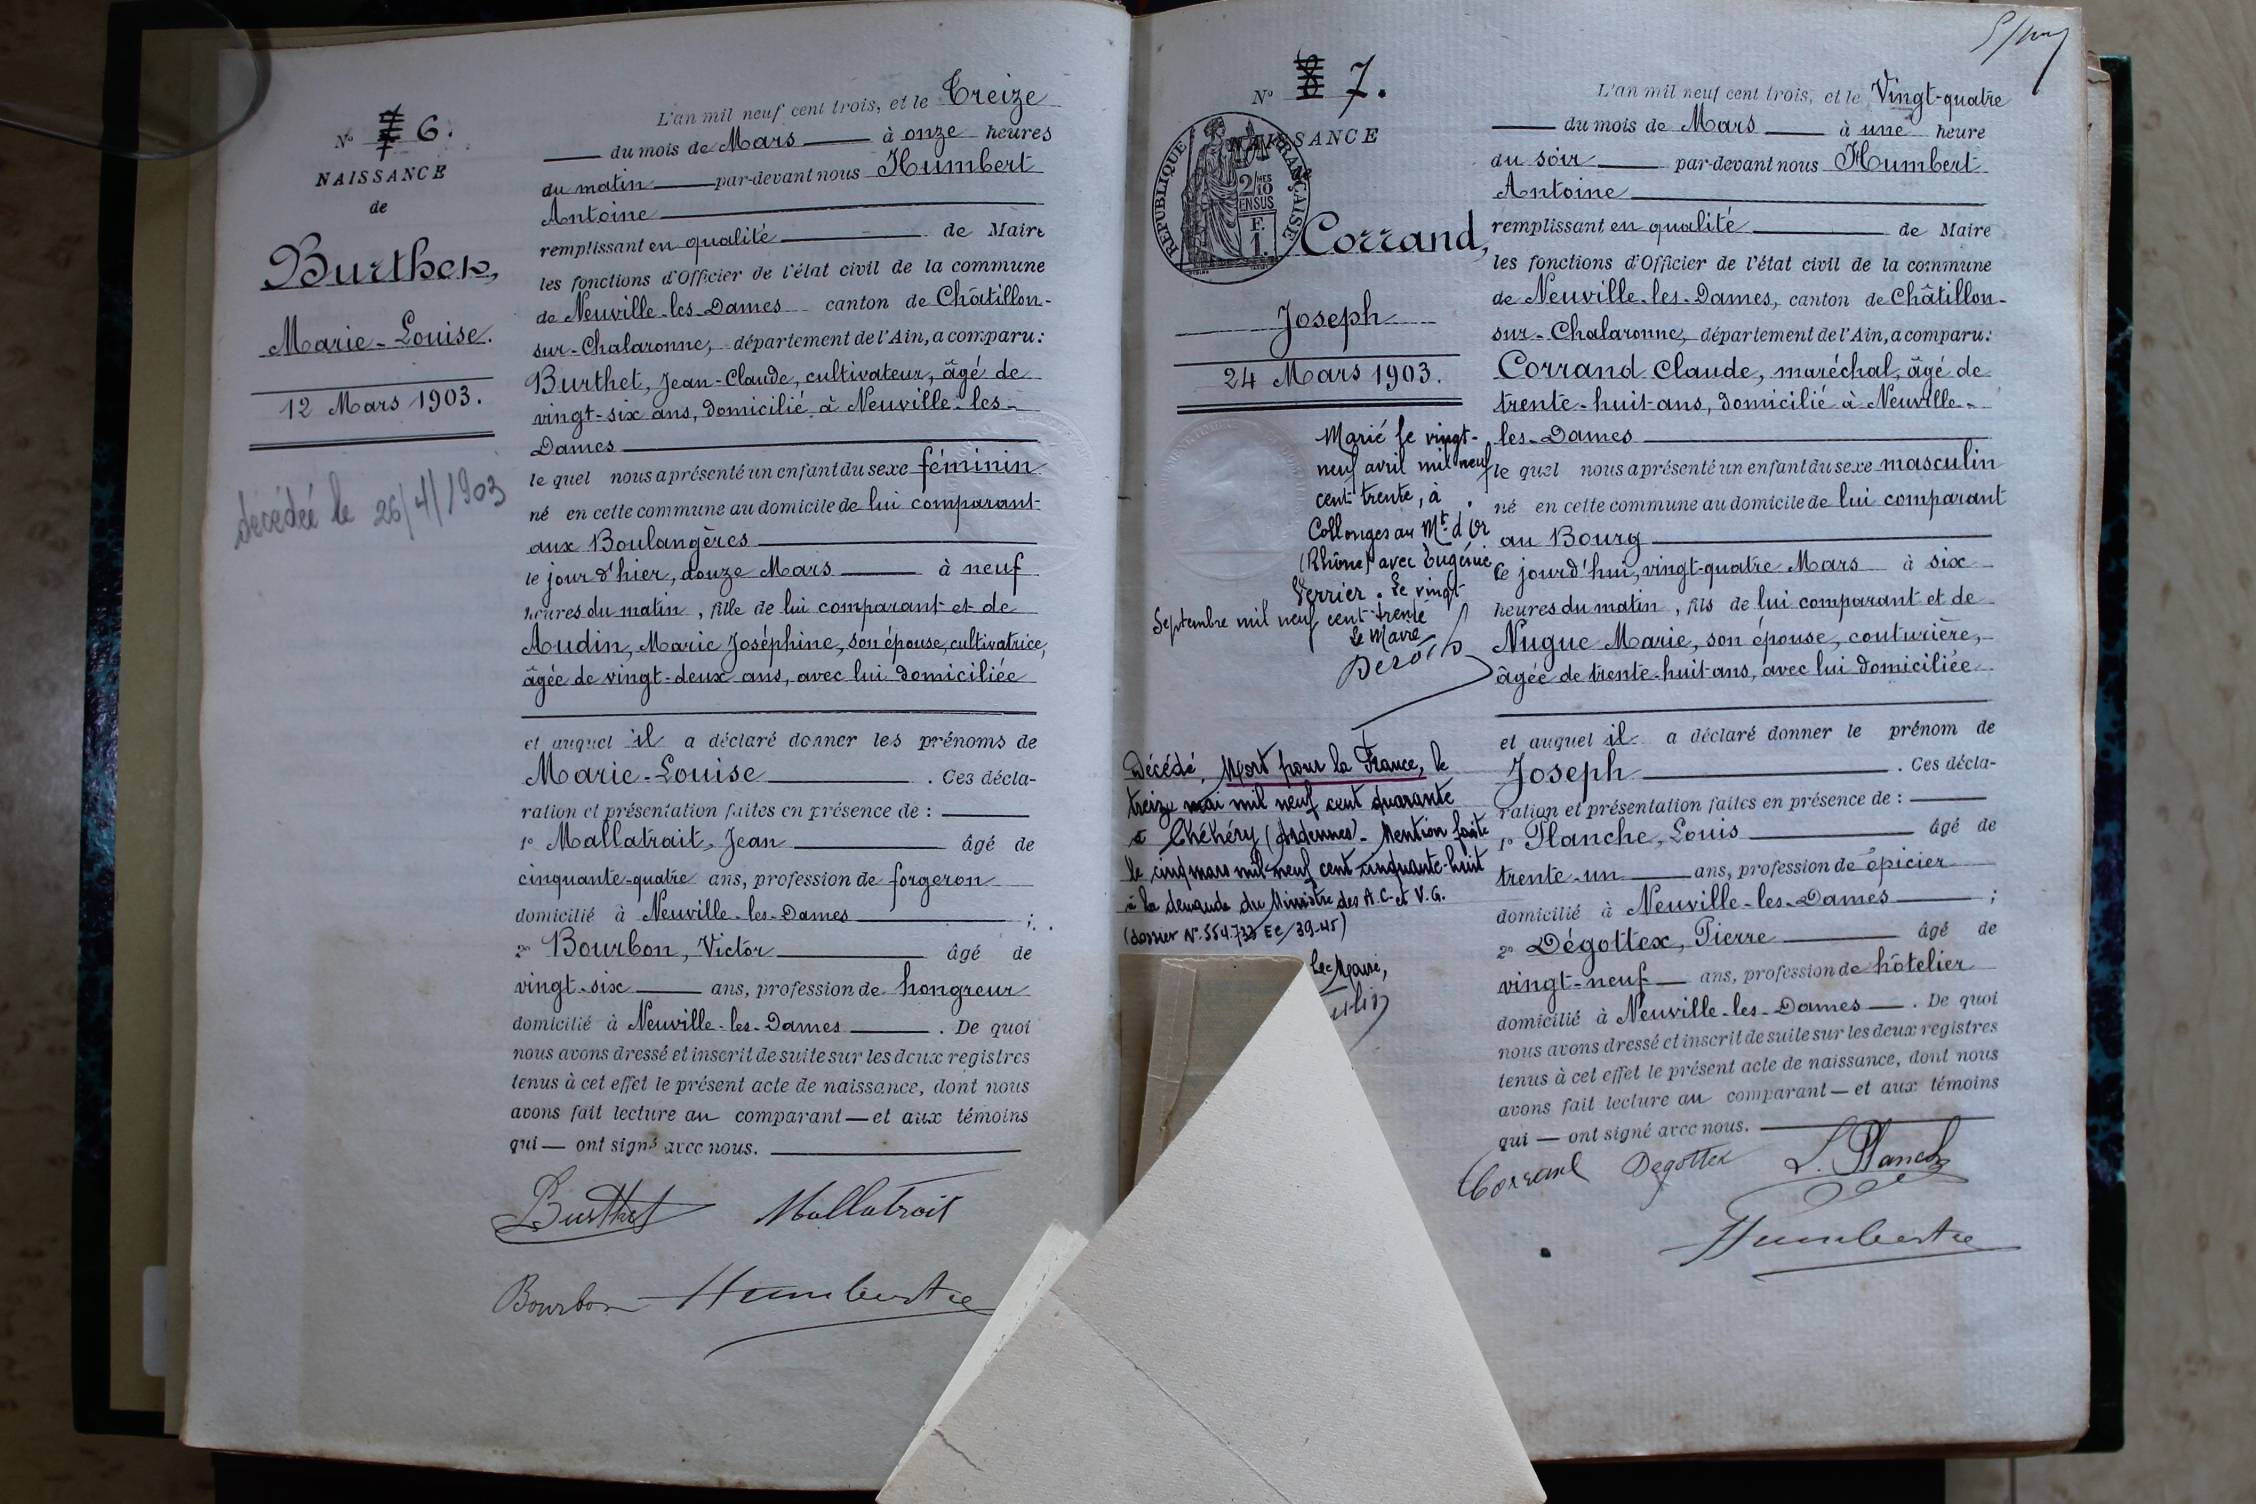 N° 7 6.
NAISSANCE
de
Burthet,
Marie-Louise.
12 Mars 1903.
décédée le 26/4/1903
L'an mil neuf cent trois, et le Treize
du mois de Mars à onze heures
du matin par-devant nous Humbert
Antoine
remplissant en qualité de Maire
les fonctions d'Officier de l'état civil de la commune
de Neuville-les-Dames canton de Châtillon-
sur-Chalaronne, département de l'Ain, a comparu:
Burthet, Jean-Claude, cultivateur, âgé de
vingt-six ans, domicilié à Neuville-les-
Dames
le quel nous a présenté un enfant du sexe féminin
né en cette commune au domicile de lui comparant
aux Boulangères
le jour d'hier, douze Mars à neuf
heures du matin, fille de lui comparant et de
Audin, Marie Joséphine, son épouse, cultivatrice,
âgée de vingt-deux ans, avec lui domiciliée
et auquel il a déclaré donner les prénoms de
Marie-Louise. Ces décla-
ration et présentation faites en présence de :
1° Mallatrait, Jean âgé de
cinquante-quatre ans, profession de forgeron
domicilié à Neuville-les-Dames ;
2° Bourbon, Victor âgé de
vingt-six ans, profession de hongreur
domicilié à Neuville-les-Dames. De quoi
nous avons dressé et inscrit de suite sur les deux registres
tenus à cet effet le présent acte de naissance, dont nous
avons fait lecture au comparant — et aux témoins
qui — ont signé avec nous.
Burthet Mallatrait
Bourbon Humbert Ae
N° 8 7.
NAISSANCE
de
RÉPUBLIQUE FRANÇAISE
2/10 EN SUS
F.
1.
Corrand,
Joseph
24 Mars 1903.
Marié le vingt-
neuf avril mil neuf
cent trente, à
Collonges au Mt d'Or
(Rhône) avec Eugénie
Verrier. Le vingt
Septembre mil neuf cent trente
Le Maire
Décédé, Mort pour la France, le
treize mai mil neuf cent quarante
à Chéhéry (Ardennes). Mention faite
le cinq mars mil neuf cent cinquante-huit
à la demande du Ministre des A.C. et V.G.
(dossier N° 554.733 EC/39-45)
Le Maire,
L'an mil neuf cent trois, et le Vingt-quatre
du mois de Mars à une heure
du soir par-devant nous Humbert
Antoine
remplissant en qualité de Maire
les fonctions d'Officier de l'état civil de la commune
de Neuville-les-Dames, canton de Châtillon-
sur-Chalaronne, département de l'Ain, a comparu:
Corrand Claude, maréchal, âgé de
trente-huit ans, domicilié à Neuville-
les-Dames
le quel nous a présenté un enfant du sexe masculin
né en cette commune au domicile de lui comparant
au Bourg
le jourd'hui, vingt-quatre Mars à six
heures du matin, fils de lui comparant et de
Nugue Marie, son épouse, couturière,
âgée de trente-huit ans, avec lui domiciliée
et auquel il a déclaré donner le prénom de
Joseph. Ces décla-
ration et présentation faites en présence de :
1° Planche, Louis âgé de
trente-un ans, profession de épicier
domicilié à Neuville-les-Dames ;
2° Dégottex, Pierre âgé de
vingt-neuf ans, profession de hôtelier
domicilié à Neuville-les-Dames. De quoi
nous avons dressé et inscrit de suite sur les deux registres
tenus à cet effet le présent acte de naissance, dont nous
avons fait lecture au comparant — et aux témoins
qui — ont signé avec nous.
Corrand Degottex L. Planche
Humbert Ae